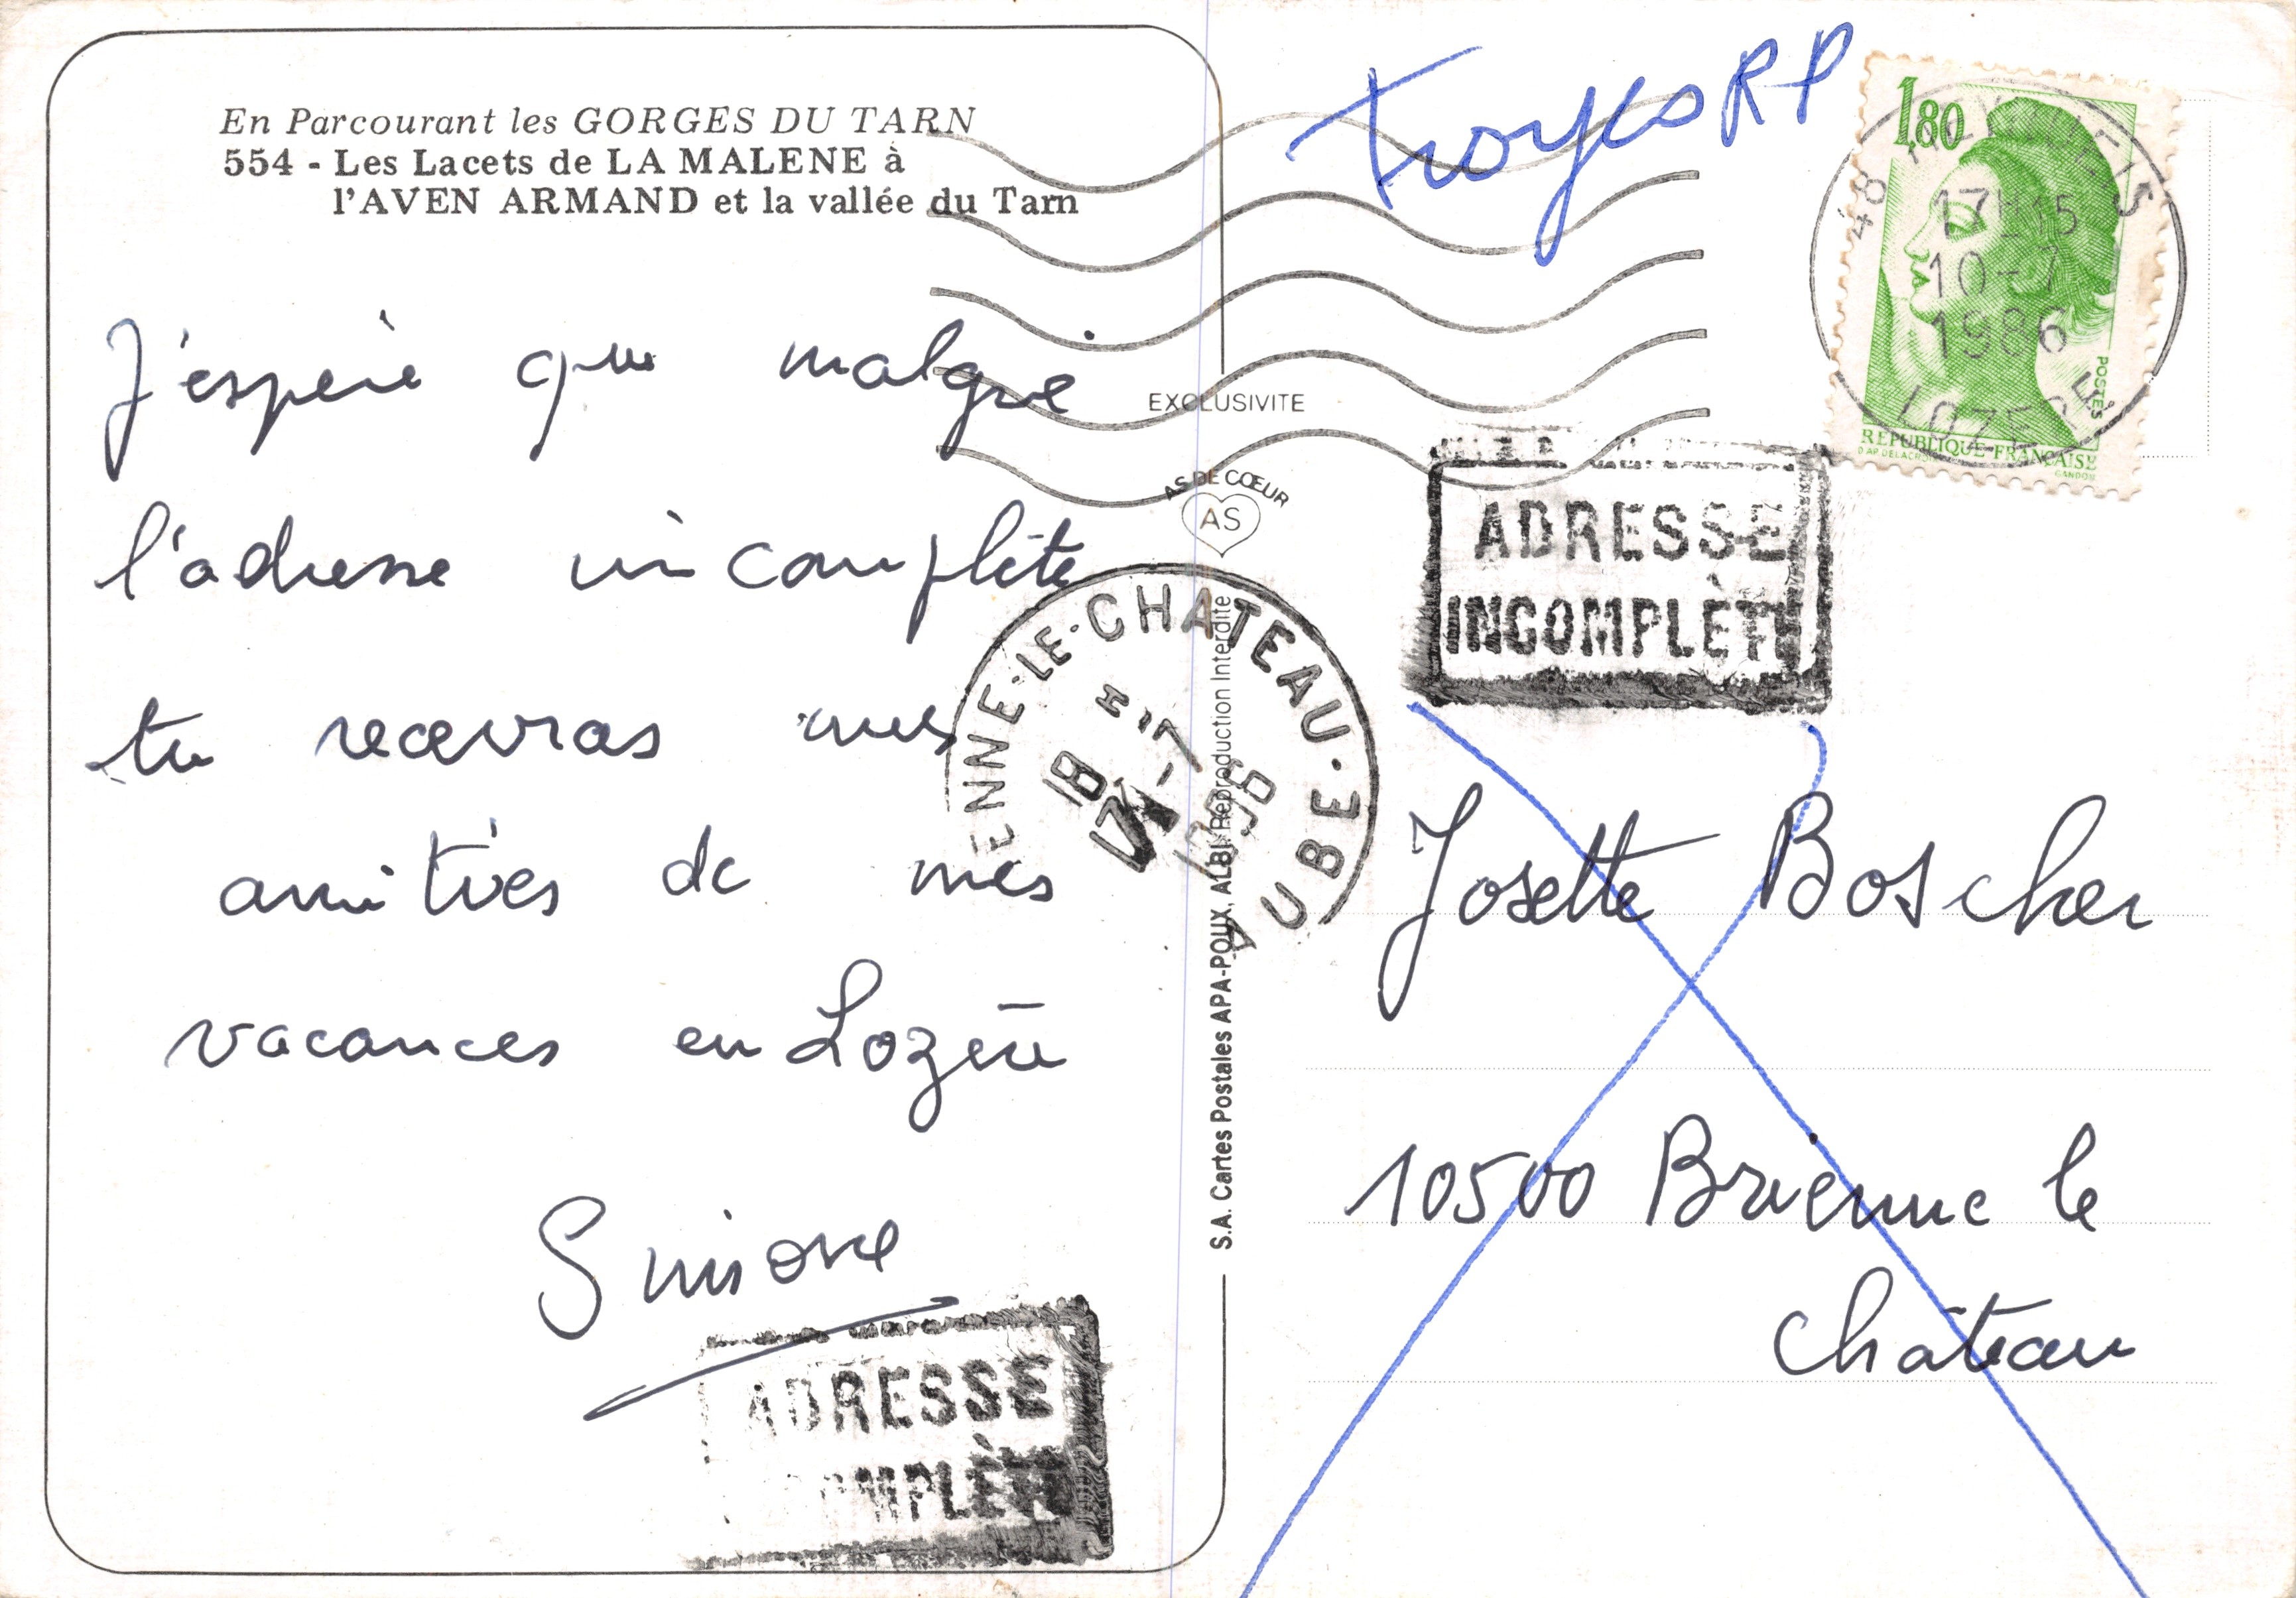 En Parcourant les GORGES DU TARN
554 - Les Lacets de LA MALENE à
l'AVEN ARMAND et la vallée du Tarn
J'espère que malgré
l'adresse incomplète
tu recevras mes
amitiés de mes
vacances en Lozère
Simone
ADRESSE
MPLÈTE
EXCLUSIVITE
AS DE CŒUR
AS
S.A. Cartes Postales APA-POUX, ALBI Reproduction Interdite
ENNE-LE-CHATEAU·
18 H
17-7
1986
AUBE
Troyes RP
1,80
POSTES
REPUBLIQUE FRANÇAISE
D'AP. DELACROIX
GANDON
48
17H15
10-7
1986
LOZERE
ADRESSE
INCOMPLÈTE
Josette Boscher
10500 Brienne le
Château